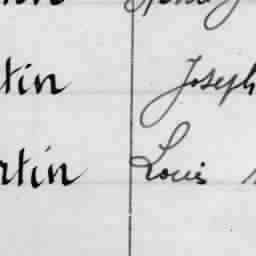 tin Joseph
rtin Louis